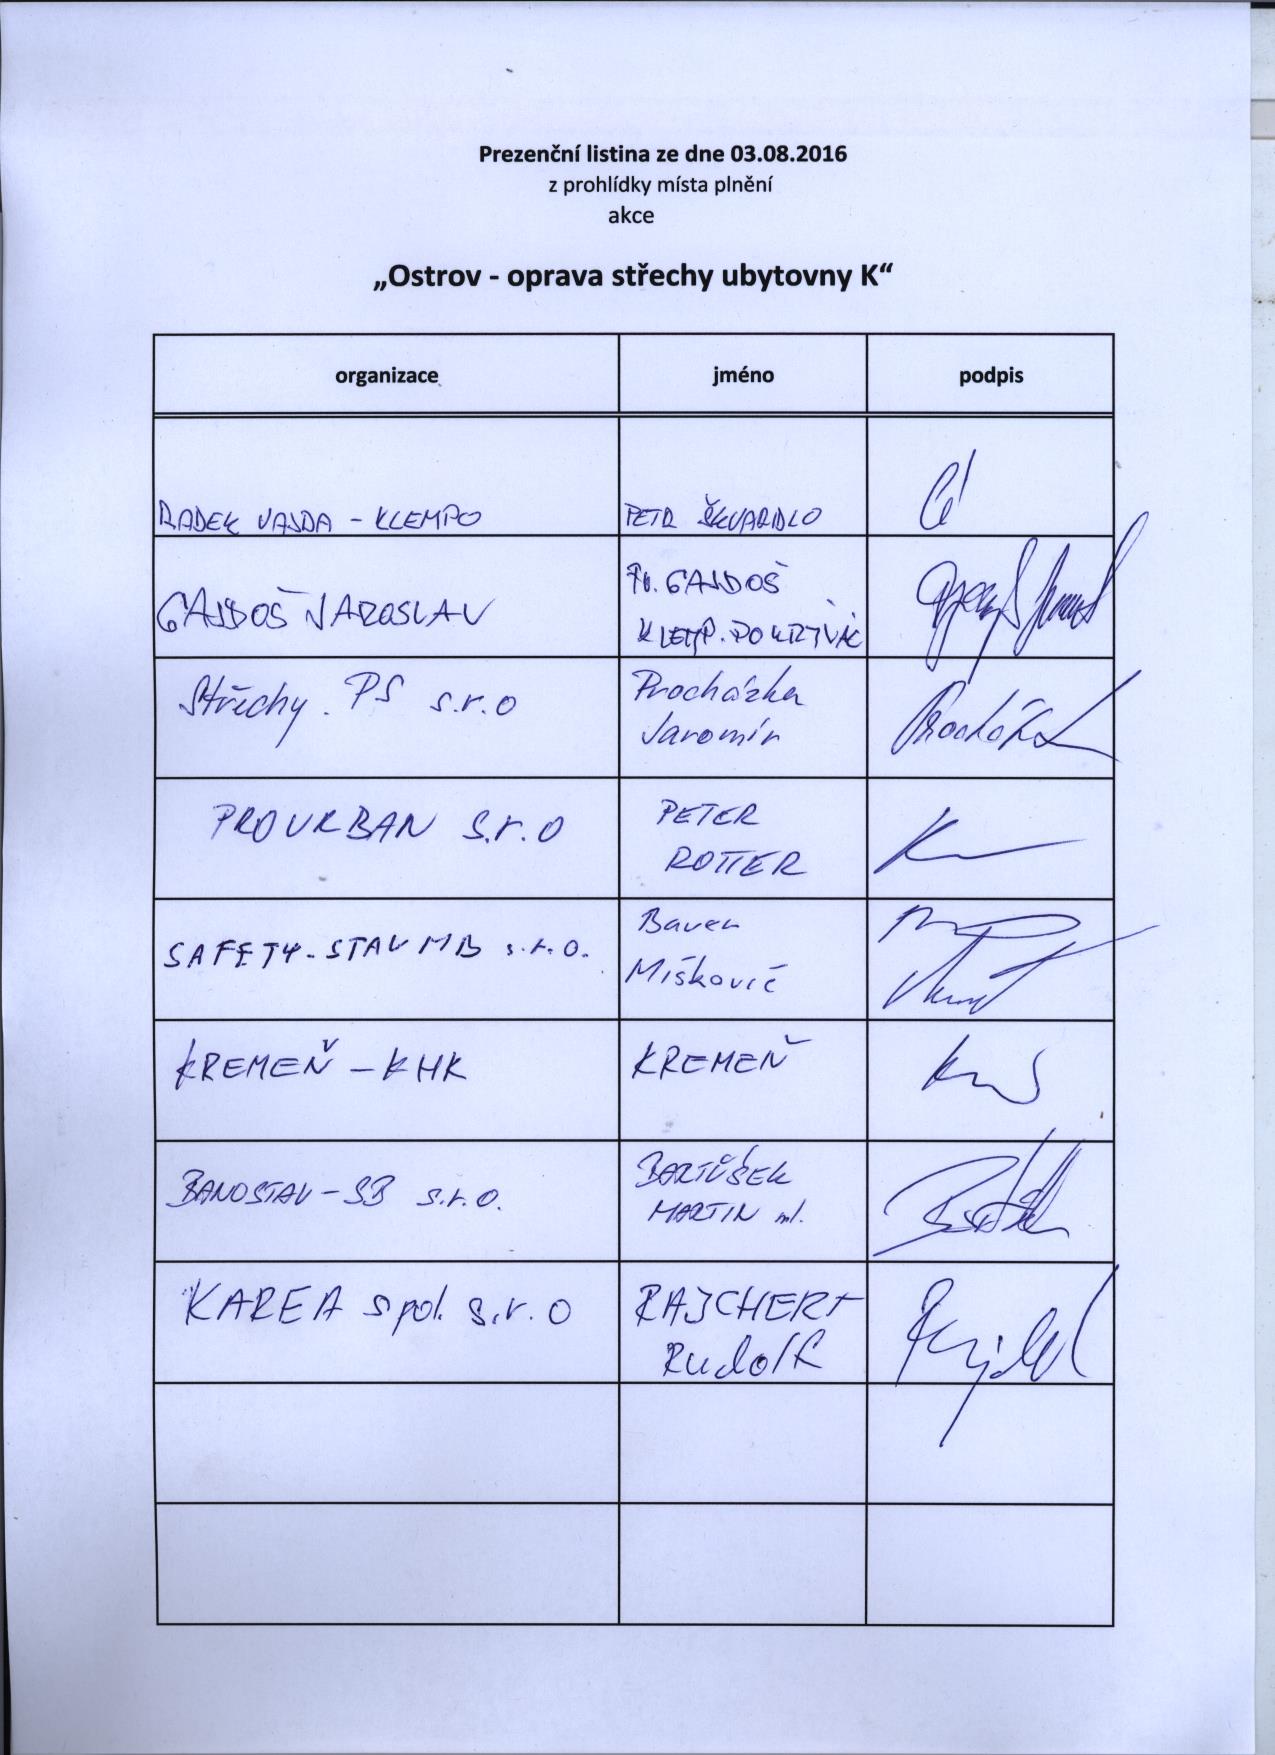 Prezenční listina ze dne 03.08.2016
z prohlídky místa plnění
akce
„Ostrov - oprava střechy ubytovny K“
organizace jméno podpis
RADEK VAJDA - KLEMPO PETR ŠKVARIDLO
GAJDOŠ JAROSLAV GAJDOŠ
KLEMP. POKRÝVAČ
Střechy PS s.r.o Procházka
Jaromír
PROURBAN s.r.o PETER
ROTTER
SAFETY-STAV MB s.r.o. Bauer
Miškovič
KREMEŇ - KHK KREMEŇ
BANOSTAV-SB s.r.o. BARTŮŠEK
MARTIN ml.
KAREA spol. s.r.o RAJCHERT
Rudolf